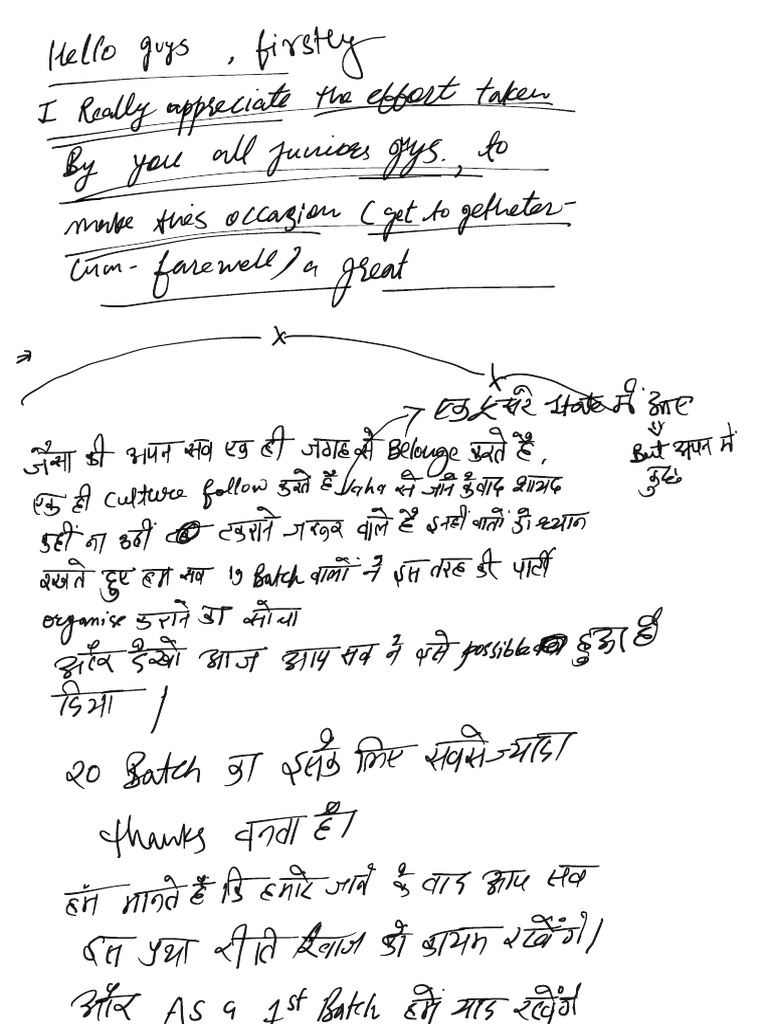 Hello guys , firstly
I Really appreciate the effort taken
By you all juniors guys , to
make this occasion (get to getheter-
cum- farewell) a great
x
x
एक दूसरे state में आए
जैसा की अपन सब एक ही जगह से Belonge करते है,
But अपन में
कुछ
एक ही culture follow करते है yaha से जाने के बाद शायद
कहीं ना कहीं टकराने जरूर वाले है इनहीं बातों को ध्यान
रखते हुए हम सब 19 Batch वालों ने इस तरह की पार्टी
organise कराने का सोचा
और देखो आज आप सब ने इसे possible हुआ है
दिया |
20 Batch का इसके लिए सबसे ज्यादा
thanks बनता है।
हम मानते है कि हमारे जाने के बाद आप सब
इस प्रथा रीति रिवाज को कायम रखेंगे।
और As a 1st Batch हमे याद रखेंगे